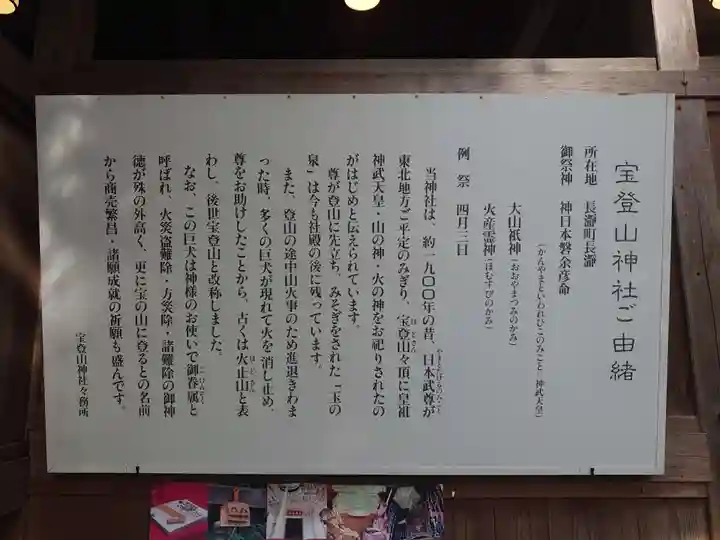 宝登山神社ご由緒
所在地 長瀞町長瀞
御祭神 神日本磐余彦命
(かんやまといわれひこのみこと 神武天皇)
大山祇神(おおやまつみのかみ)
火産霊神(ほむすびのかみ)
例祭 四月三日
当神社は、約一九〇〇年の昔、日本武尊が
やまとたけるのみこと
東北地方ご平定のみぎり、宝登山々頂に皇祖
ほとさん
神武天皇・山の神・火の神をお祀りされたの
がはじめと伝えられています。
尊が登山に先立ち、みそぎをされた「玉の
泉」は今も社殿の後に残っています。
また、登山の途中山火事のため進退きわま
った時、多くの巨犬が現れて火を消し止め、
尊をお助けしたことから、古くは火止山と表
ほどさん
わし、後世宝登山と改称しました。
なお、この巨犬は神様のお使いで御眷属と
ごけんぞく
呼ばれ、火災盗難除・方災除・諸難除の御神
徳が殊の外高く、更に宝の山に登るとの名前
から商売繁昌・諸願成就の祈願も盛んです。
宝登山神社々務所